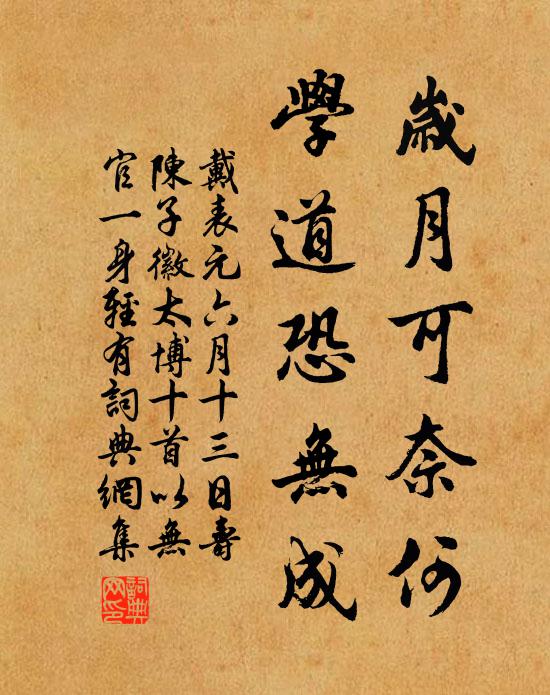 歲月可奈何
學道恐無成
戴表元六月十三日壽
陳子徽太博十首以無
官一身輕有詞典網集
詞典網印